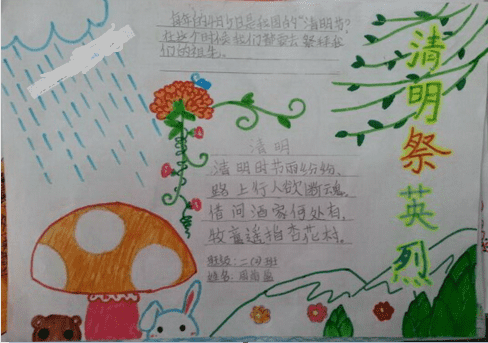 清明祭英烈
每年的4月5日是我国的"清明节"
在这个时候我们都要去祭拜我
们的祖先。
清明
清明时节雨纷纷,
路上行人欲断魂,
借问酒家何处有,
牧童遥指杏花村。
班级:二(4)班
姓名: